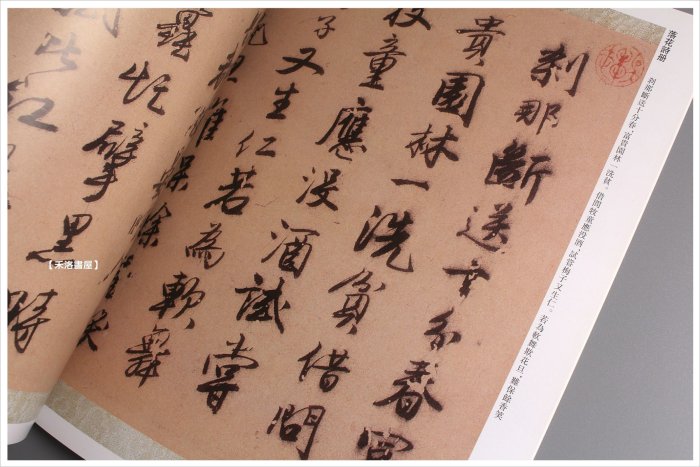 落花詩册
刹那斷送十分春，富貴園林一洗貧。借問牧童應没酒，試嘗梅子又生仁。若為軟舞欺花旦，難保餘香笑
刹那斷送十分春富
貴園林一洗貧借問
牧童應没酒試嘗
子又生仁若為軟舞
花旦難保餘香笑
擘黑
【禾洛書屋】